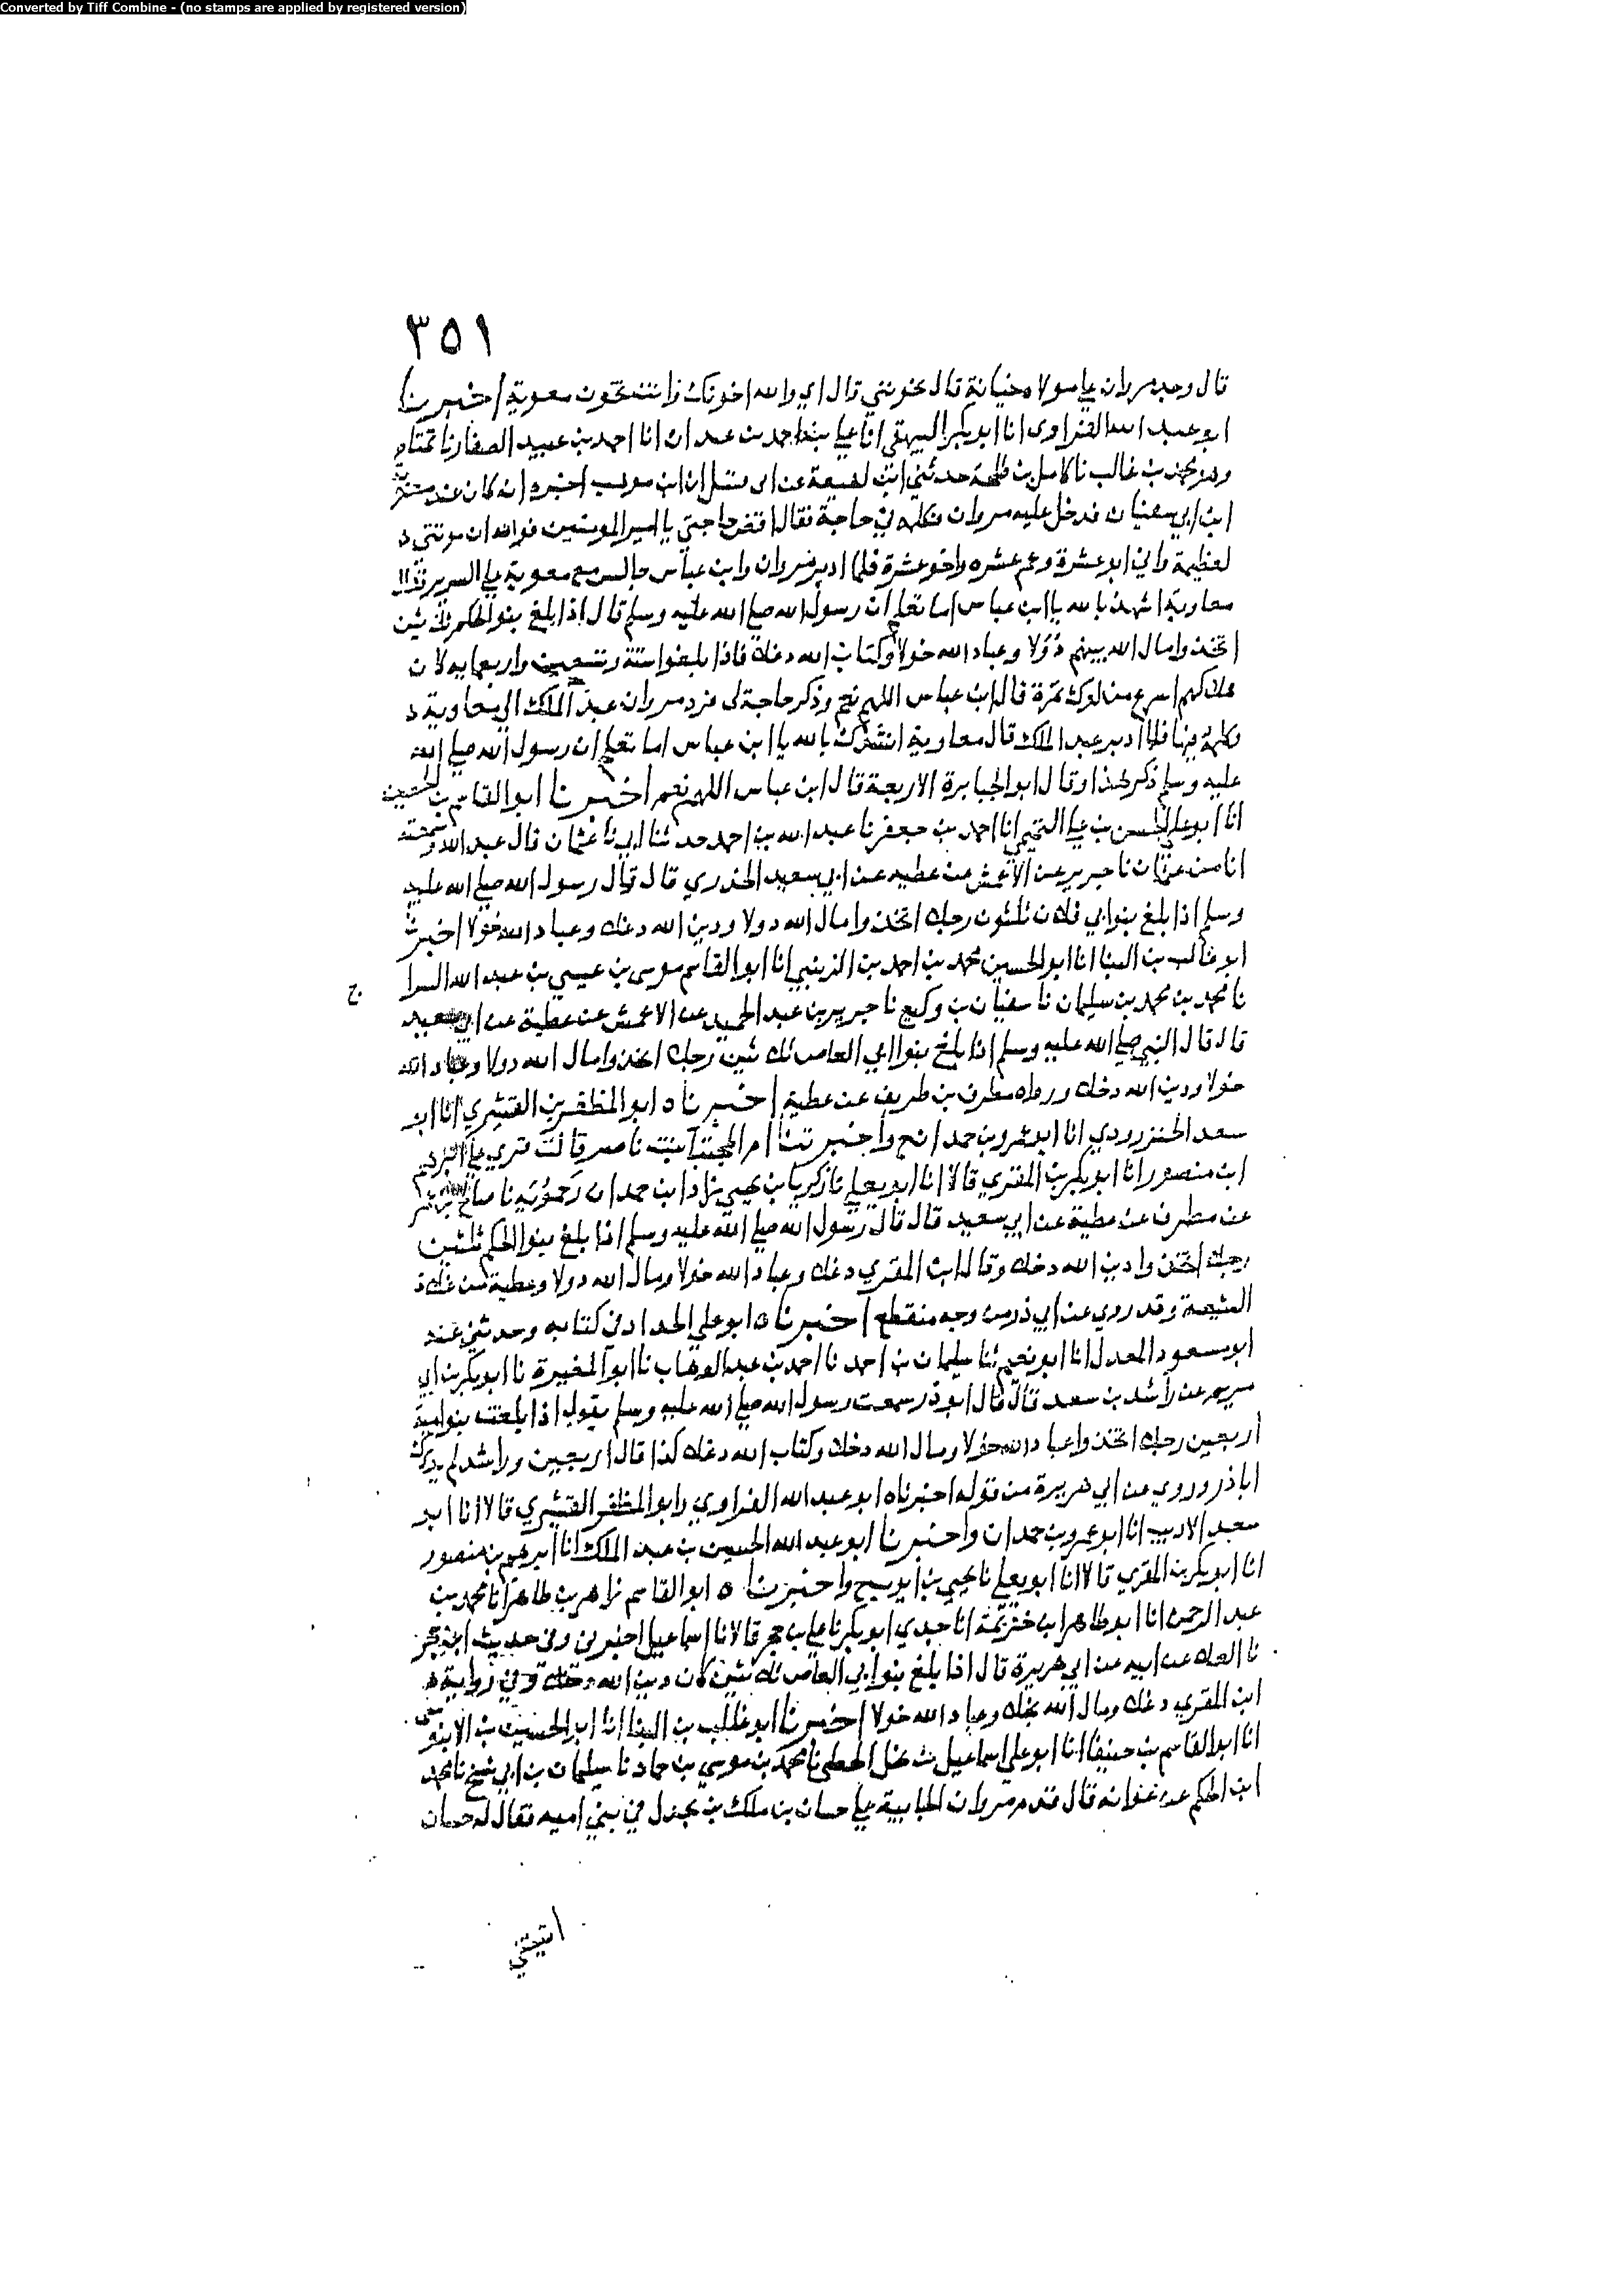 Converted by Tiff Combine - (no stamps are applied by registered version)
٣٥١
قال وجد مروان علي مولا ه خيانة قال تخونني قال اي والله اخونك وانت تخون معوية اخبرنا
ابو عبد الله الفراوى انا ابو بكر البيهقي انا علي بن احمد بن عبد ان انا احمد بن عبيد الصفار نا تمتام
وهو محمد بن غالب نا كامل بن طلحة حدثني ابن لهيعة عن ابى قبيل ان ابن موهب اخبره انه كان عند معوية
ابن ابي سفيان فدخل عليه مروان فكلمه في حاجة فقال اقض حاجتي يا امير المومنين فوالله ان مونتي
لعظيمة واني ابو عشرة وعم عشره واخو عشرة فلما ادبر مروان وابن عباس جالس مع معوية علي السرير
معاوية اشهد بالله يا ابن عباس اما تعلم ان رسول الله صلي الله عليه وسلم قال اذا بلغ بنو الحكم ثلثين
اتخذوا مال الله بينهم دولا وعباد الله خولا وكتاب الله دغلا فاذا بلغوا ستة وتسعين واربعمايه كان
هلاكهم اسرع من لوك تمرة قال ابن عباس اللهم نعم وذكر حاجة له فرد مروان عبد الملك الي معاوية
فكلمه فيها فلما ادبر عبد الملك قال معاوية انشدك بالله يا ابن عباس اما تعلم ان رسول الله صلي الله
عليه وسلم ذكر هذا وقال ابو الجبابرة الاربعة قال ابن عباس اللهم نعم اخبرنا ابو القاسم بن الحصين
انا ابو علي الحسن بن علي التميمي انا احمد بن جعفر نا عبد الله بن احمد حدثنا ابي نا عثمان قال عبد الله وسمعته
انا من عثمان نا جرير عن الاعمش عن عطيه عن ابي سعيد الخدري قال قال رسول الله صلي الله عليه
وسلم اذا بلغ بنو ابي فلان ثلثون رجلا اتخذوا مال الله دولا ودين الله دغلا وعباد الله خولا اخبرنا
ابو غالب بن البنا انا ابو الحسين محمد بن احمد بن النرسي انا ابو القاسم موسى بن عيسي بن عبد الله السرا
ج
نا محمد بن محمد بن سليمان نا سفيان بن وكيع نا جرير بن عبد الحميد عن الاعمش عن عطية عن ابي سعيد
قال قال النبي صلي الله عليه وسلم اذا بلغ بنوا ابي العاص ثلثين رجلا اتخذوا مال الله دولا وعباد الله
خولا ودين الله دخلا ورواه مطرف بن طريف عن عطية اخبرنا ه ابو المظفر بن القشيري انا ابو
سعد الجنزرودي انا ابو عمرو بن حمدان ح واخبرتنا ام المجتبا بنت ناصر قالت قري علي ابراهيم
ابن منصور انا ابو بكر بن المقري قالا انا ابو يعلي نا زكريا بن يحيي زاد ابن حمدان زحمويه نا صالح بن عمر
عن مطرف عن عطية عن ابي سعيد قال قال رسول الله صلي الله عليه وسلم اذا بلغ بنو الحكم ثلثين
رجلا اتخذوا دين الله دخلا وقال ابن المقري دغلا وعباد الله خولا ومال الله دولا وعطية من غلاة
الشيعة وقد روي عن ابي ذر من وجه منقطع اخبرنا ه ابو علي الحداد في كتابه وحدثني عنه
ابو مسعود المعدل انا ابو نعيم ثنا سليمان بن احمد نا احمد بن عبد الوهاب نا ابو المغيرة نا ابو بكر بن ابي
مريم عن راشد بن سعد قال قال ابو ذر سمعت رسول الله صلي الله عليه وسلم يقول اذا بلغت بنو امية
اربعين رجلا اتخذوا عباد الله خولا ومال الله دخلا وكتاب الله دغلا كذا قال اربعين وراشد لم يدرك
اباذر وروي عن ابي هريرة من قوله اخبرناه ابو عبد الله الفراوي وابو المظفر القشيري قالا انا ابو
سعد الاديب انا ابو عمرو بن حمدان واخبرنا ابو عبد الله الحسين بن عبد الملك انا ابرهيم بن منصور
انا ابو بكر بن المقري قالا انا ابو يعلي نا يحيي بن ايوب ح واخبرنا ه ابو القاسم زاهر بن طاهر انا محمد بن
عبد الرحمن انا ابو طاهر ابن خزيمة انا جدي ابو بكر نا علي بن حجر قالا نا اسماعيل اخبرني وفي حديث ابن حجر
نا العلا عن ابيه عن ابي هريرة قال اذا بلغ بنو ابي العاص ثلثين كان دين الله دخلا وفي رواية
ابن المقري دغلا ومال الله نحلا وعباد الله خولا اخبرنا ابو غالب بن البنا انا ابو الحسين بن الابنوسى
انا ابو القاسم بن حنيفا انا ابو علي اسماعيل بن علي الخطبى نا محمد بن موسي بن حماد نا سليمان بن ابي شيخ نا محمد
ابن الحكم عن عوانه قال قدم مروان الجابية علي حسان بن ملك بن بحدل في بني اميه فقال له حسان
اتيتني